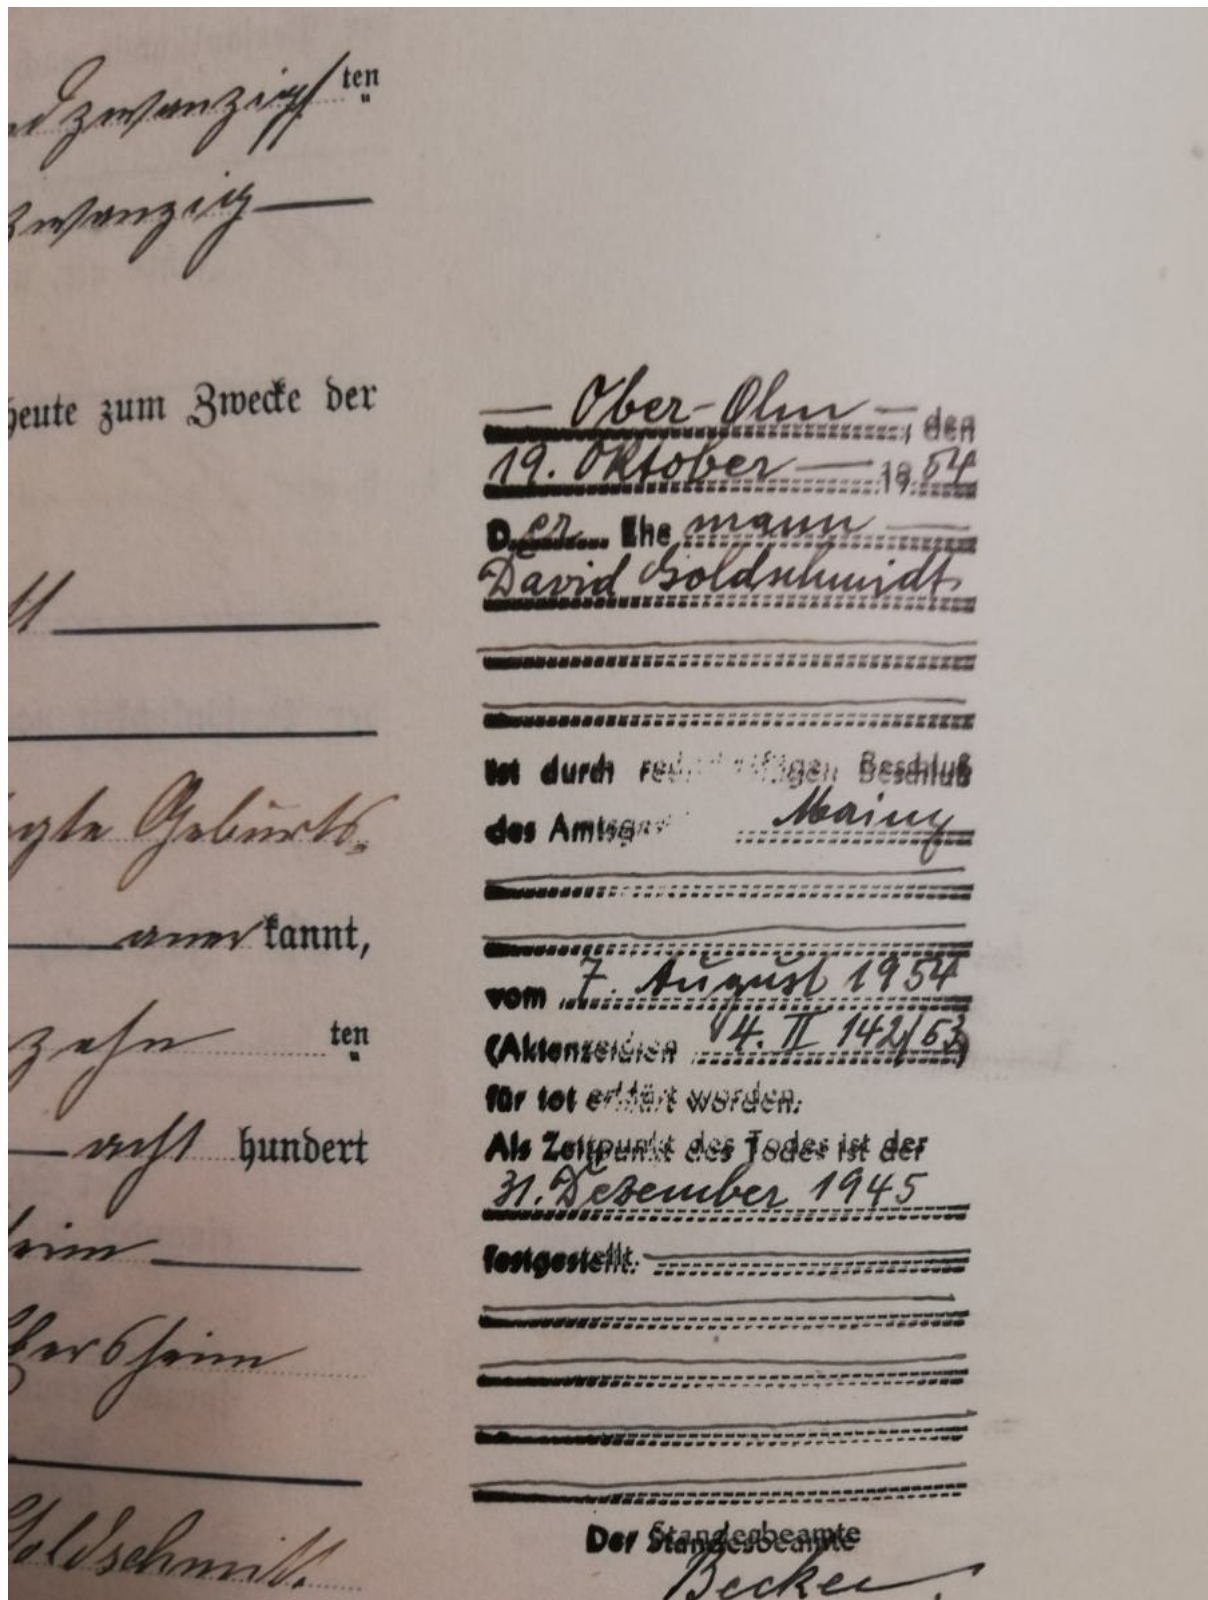 zwanzigsten
zwanzig
heute zum Zwecke der
gte Geburts-
anerkannt,
zehnten
acht hundert
heim
Ebersheim
Goldschmitt.
Ober-Olm, den
19. Oktober 1954
Der Ehemann
David Goldschmidt
ist durch rechtskräftigen Beschluß
des Amtsgerichts Mainz
vom 7. August 1954
(Aktenzeichen 4. II 142/53)
für tot erklärt worden.
Als Zeitpunkt des Todes ist der
31. Dezember 1945
festgestellt.
Der Standesbeamte
Becker